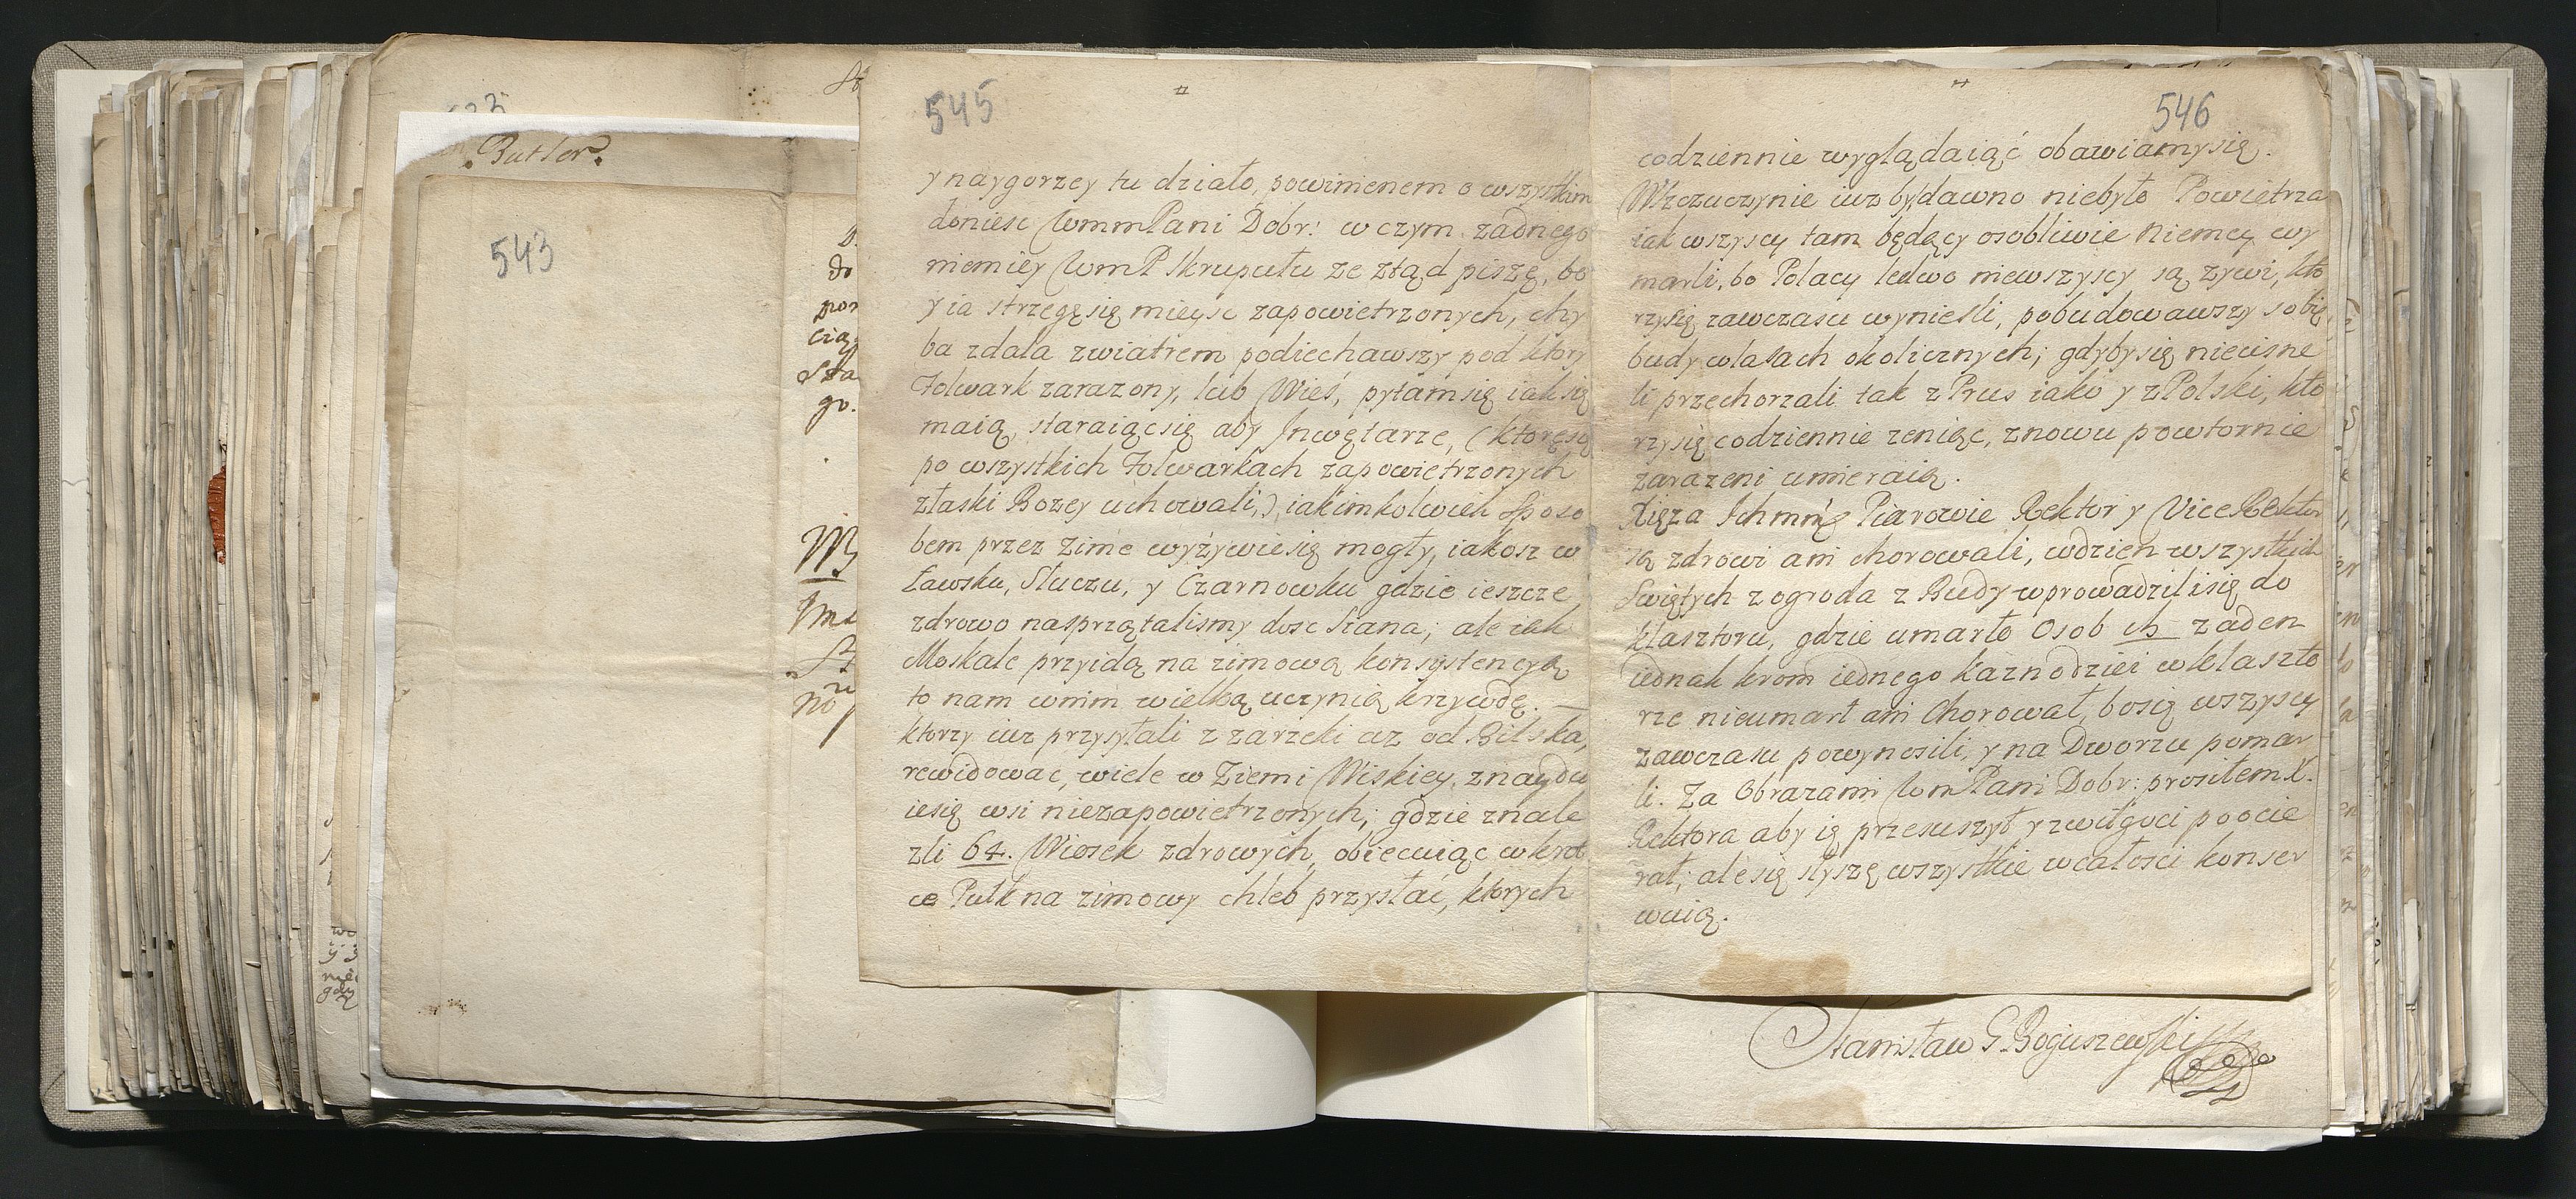 Butler.
543
545
y naygorzey tu działo, powinienem o wszystkim
doniesc WmmPani Dobr: w czym zadnego
niemiey WmP skrupułu ze ztąd piszę, bo
y ia strzegę się mieysc zapowietrzonych, chy
ba zdala zwiatrem podiechawszy pod ktory
Folwark zarazony, lub Wieś, pytam się iak się
maią, staraiąc się aby Inwętarze, (ktore są
po wszystkich Folwarkach zapowietrzonych
złaski Bozey uchowali,) iakimkolwiek sposo
bem przez Zime wyżywic się mogły, iakosz w
Ławsku, Słuczu, y Czarnowku gdzie ieszcze
zdrowo nasprzątalismy dosc Siana; ale iak
Moskale przyidą na zimową konsystencyą
to nam wnim wielką uczynią krzywdę.
ktorzy iuz przysyłali z zarzeki az od Bilska,
rewidować, wiele w Ziemi Wiskiey znaydu
ie się wsi niezapowietrzonych; gdzie znale
zli 64. Wiosek zdrowych, obiecuiąc wkrot
ce Pułk na zimowy chleb przysłać, ktorych
546
codziennie wyglądaiąć obawiamy się.
Wszczuczynie iuz by dawno niebyło Powietrza
iak wszyscy tam będący osobliwie Niemcy wy
marli, bo Polacy ledwo niewszyscy są zywi, kto
rzy się zawczasu wyniesli, pobudowawszy sobie
budy wlasach okolicznych; gdyby się niecisne
li przechorzali tak z Prus iako y z Polski, kto
rzy się codziennie zeniąc, znowu powtornie
zarazeni umieraią.
Xięza Ichmm Piarowie Rektor y ViceRektor
są zdrowi ani chorowali, wdzien wszystkich
Swiętych z ogroda z Budy wprowadzili się do
klasztoru, gdzie umarło Osob zaden
iednak krom iednego kaznodziei wklaszto
rze nieumarł ani chorował, bo się wszyscy
zawczasu powynosili, y na Dworzu pomar
li. Za Obrazami WmPani Dobr: prosiłem X.
Rektora aby ią przesuszył y zwilgoci poocie
rał; ale się słyszę wszystkie wcałosci konser
wuią.
Stanisław G. Boguszewski